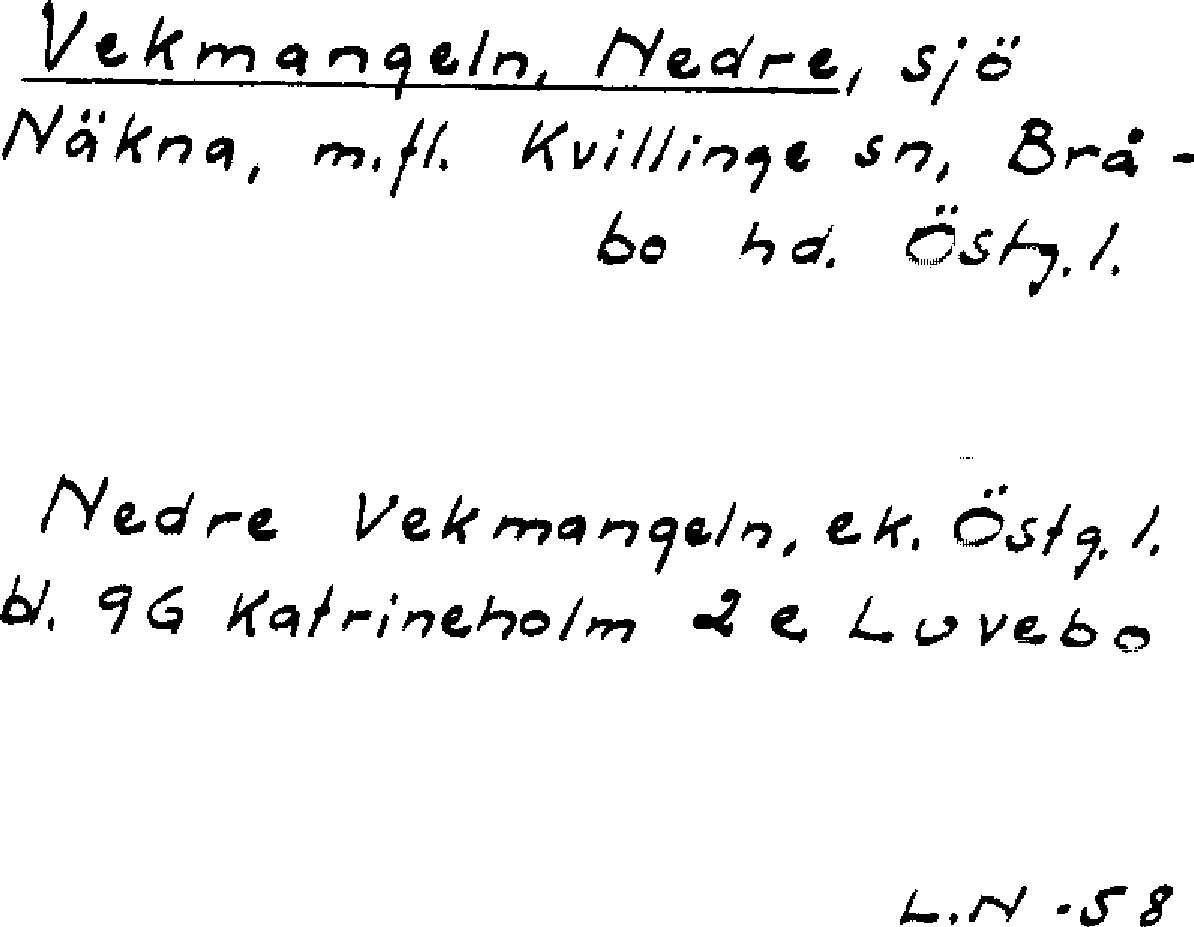 Vekmangeln, Nedre, sjö
Näkna, m.fl. Kvillinge sn, Brå-
bo hd. Östg.l.
Nedre Vekmangeln, ek. Östg.l.
bl. 9G Katrineholm 2e Luvebo
L.N -58